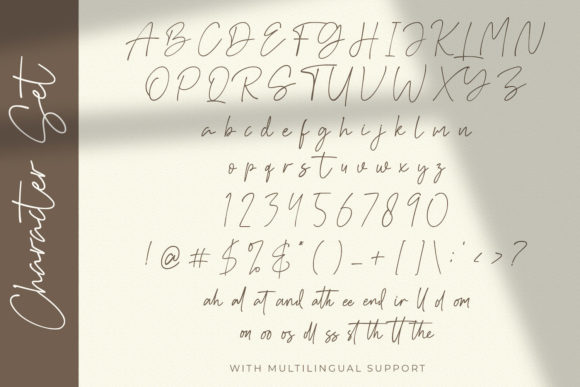 Character Set
A B C D E F G H I J K L M N
O P Q R S T U V W X Y Z
a b c d e f g h i j k l m n
o p q r s t u v w x y z
1 2 3 4 5 6 7 8 9 0
! @ # $ % & * ( ) _ + [ ] \ : ' < > ?
ah al at and ath ee end ir ll d om
on oo os dll ss st th tt the
WITH MULTILINGUAL SUPPORT